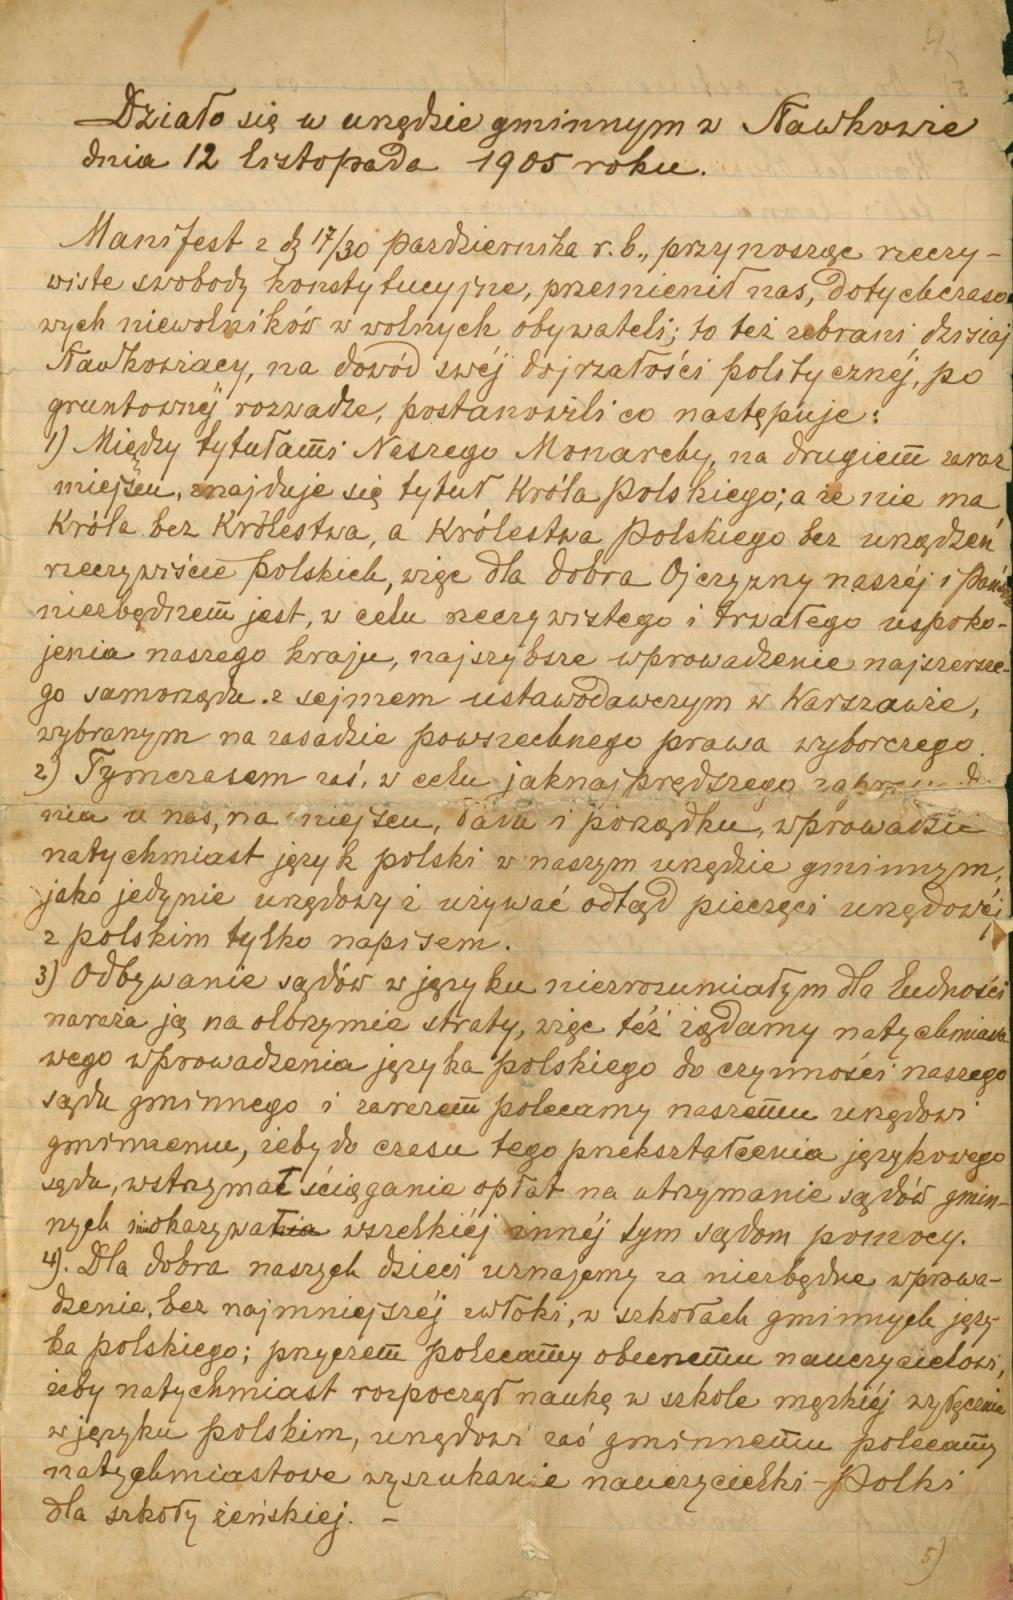 Działo się w urzędzie gminnym w Sławkowie
dnia 12 listopada 1905 roku.
Manifest z d. 17/30 Października r. b., przynosząc rzeczy-
wiste swobody konstytucyjne, przemienił nas, dotychczaso
wych niewolników w wolnych obywateli; to też zebrani dzisiaj
Sławkowiacy, na dowód swéj dojrzałości politycznéj, po
gruntownéj rozwadze, postanowili co następuje:
1) Między tytułami Naszego Monarchy, na drugiem zaraz
miejscu, znajduje się tytuł Króla Polskiego; a że nie ma
Króla bez Królestwa, a Królestwa Polskiego bez urządzeń
rzeczywiście polskich, więc dla dobra Ojczyzny naszéj i
niezbędnem jest, w celu rzeczywistego i trwałego uspoko-
jenia naszego kraju, najszybsze wprowadzenie najszersze-
go samorządu z sejmem ustawodawczym w Warszawie,
wybranym na zasadzie powszechnego prawa wyborczego.
2) Tymczasem zaś, w celu jaknajprędszego
nia u nas, na miejscu, ładu i porządku, wprowadzić
natychmiast język polski w naszym urzędzie gminnym,
jako jedynie urzędowy i używać odtąd pieczęci urzędowéj
z polskim tylko napisem.
3) Odbywanie sądów w języku niezrozumiałym dla ludności
naraża ją na olbrzymie straty, więc też żądamy natychmiasto
wego wprowadzenia języka polskiego do czynności naszego
sądu gminnego i zarazem polecamy naszemu urzędowi
gminnemu, żeby do czasu tego przekształcenia językowego
sądu, wstrzymał ściąganie opłat na utrzymanie sądów gmin-
nych i wszelkiéj innéj tym sądom pomocy.
4). Dla dobra naszych dzieci uznajemy za niezbędne wprowa-
dzenie, bez najmniejszéj zwłoki, w szkołach gminnych języ
ka polskiego; przyczem polecamy obecnemu nauczycielowi,
żeby natychmiast rozpoczął naukę w szkole męzkiéj wyłącznie
w języku polskim, urzędowi zaś gminnemu polecamy
natychmiastowe wyszukanie nauczycielki-Polki
dla szkoły żeńskiej. –
5)